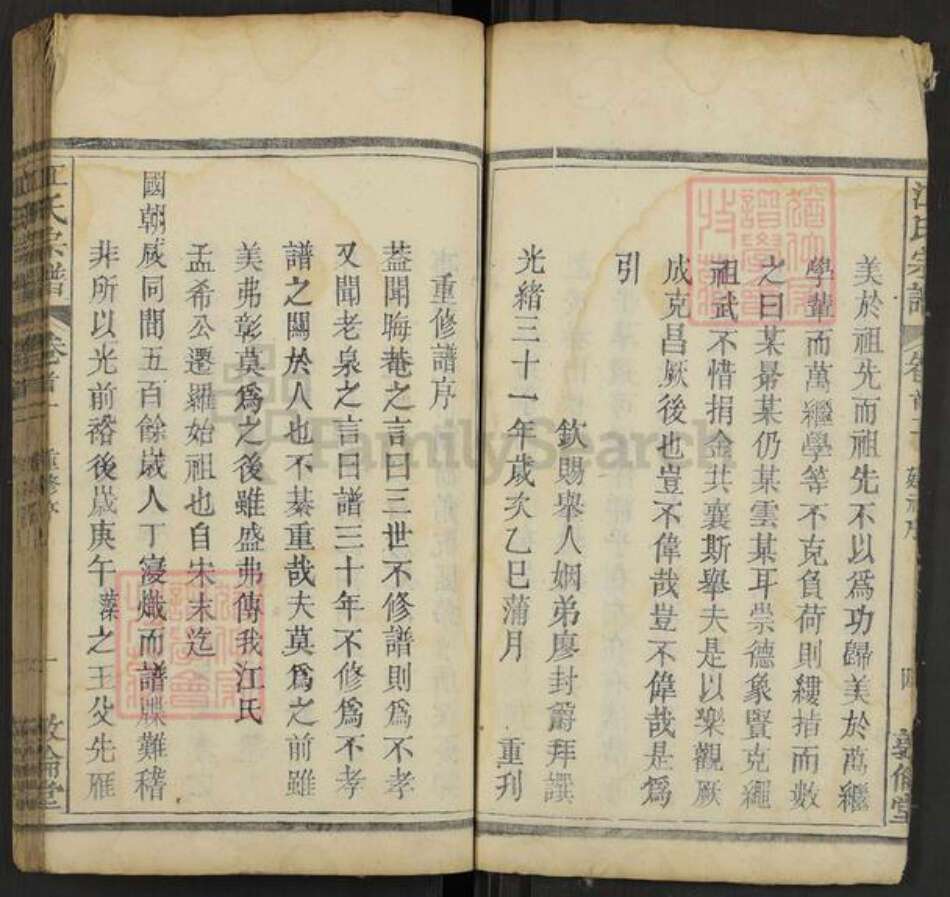 江氏宗譜
美於祖先而祖先不以為功歸美於萬繼
學輩而萬繼學等不克負荷則縷指而數
之曰某晜某仍某雲某耳崇德象賢克繩
祖武不惜捐金共襄斯舉夫是以樂觀厥
成克昌厥後也豈不偉哉豈不偉哉是為
引
欽賜舉人姻弟廖封爵拜譔
光緒三十一年歲次乙巳蒲月 重刊
重修譜序
蓋聞晦菴之言曰三世不修譜則為不孝
又聞老泉之言曰譜三十年不修為不孝
譜之關於人也不綦重哉夫莫為之前雖
美弗彰莫為之後雖盛弗傳我江氏
孟希公遷羅始祖也自宋末迄
國朝咸同間五百餘歲人丁寖熾而譜牒難稽
非所以光前裕後歲庚午藻之王父先雁
江氏宗譜
卷首一
重修序
一
敦倫堂
FamilySearch